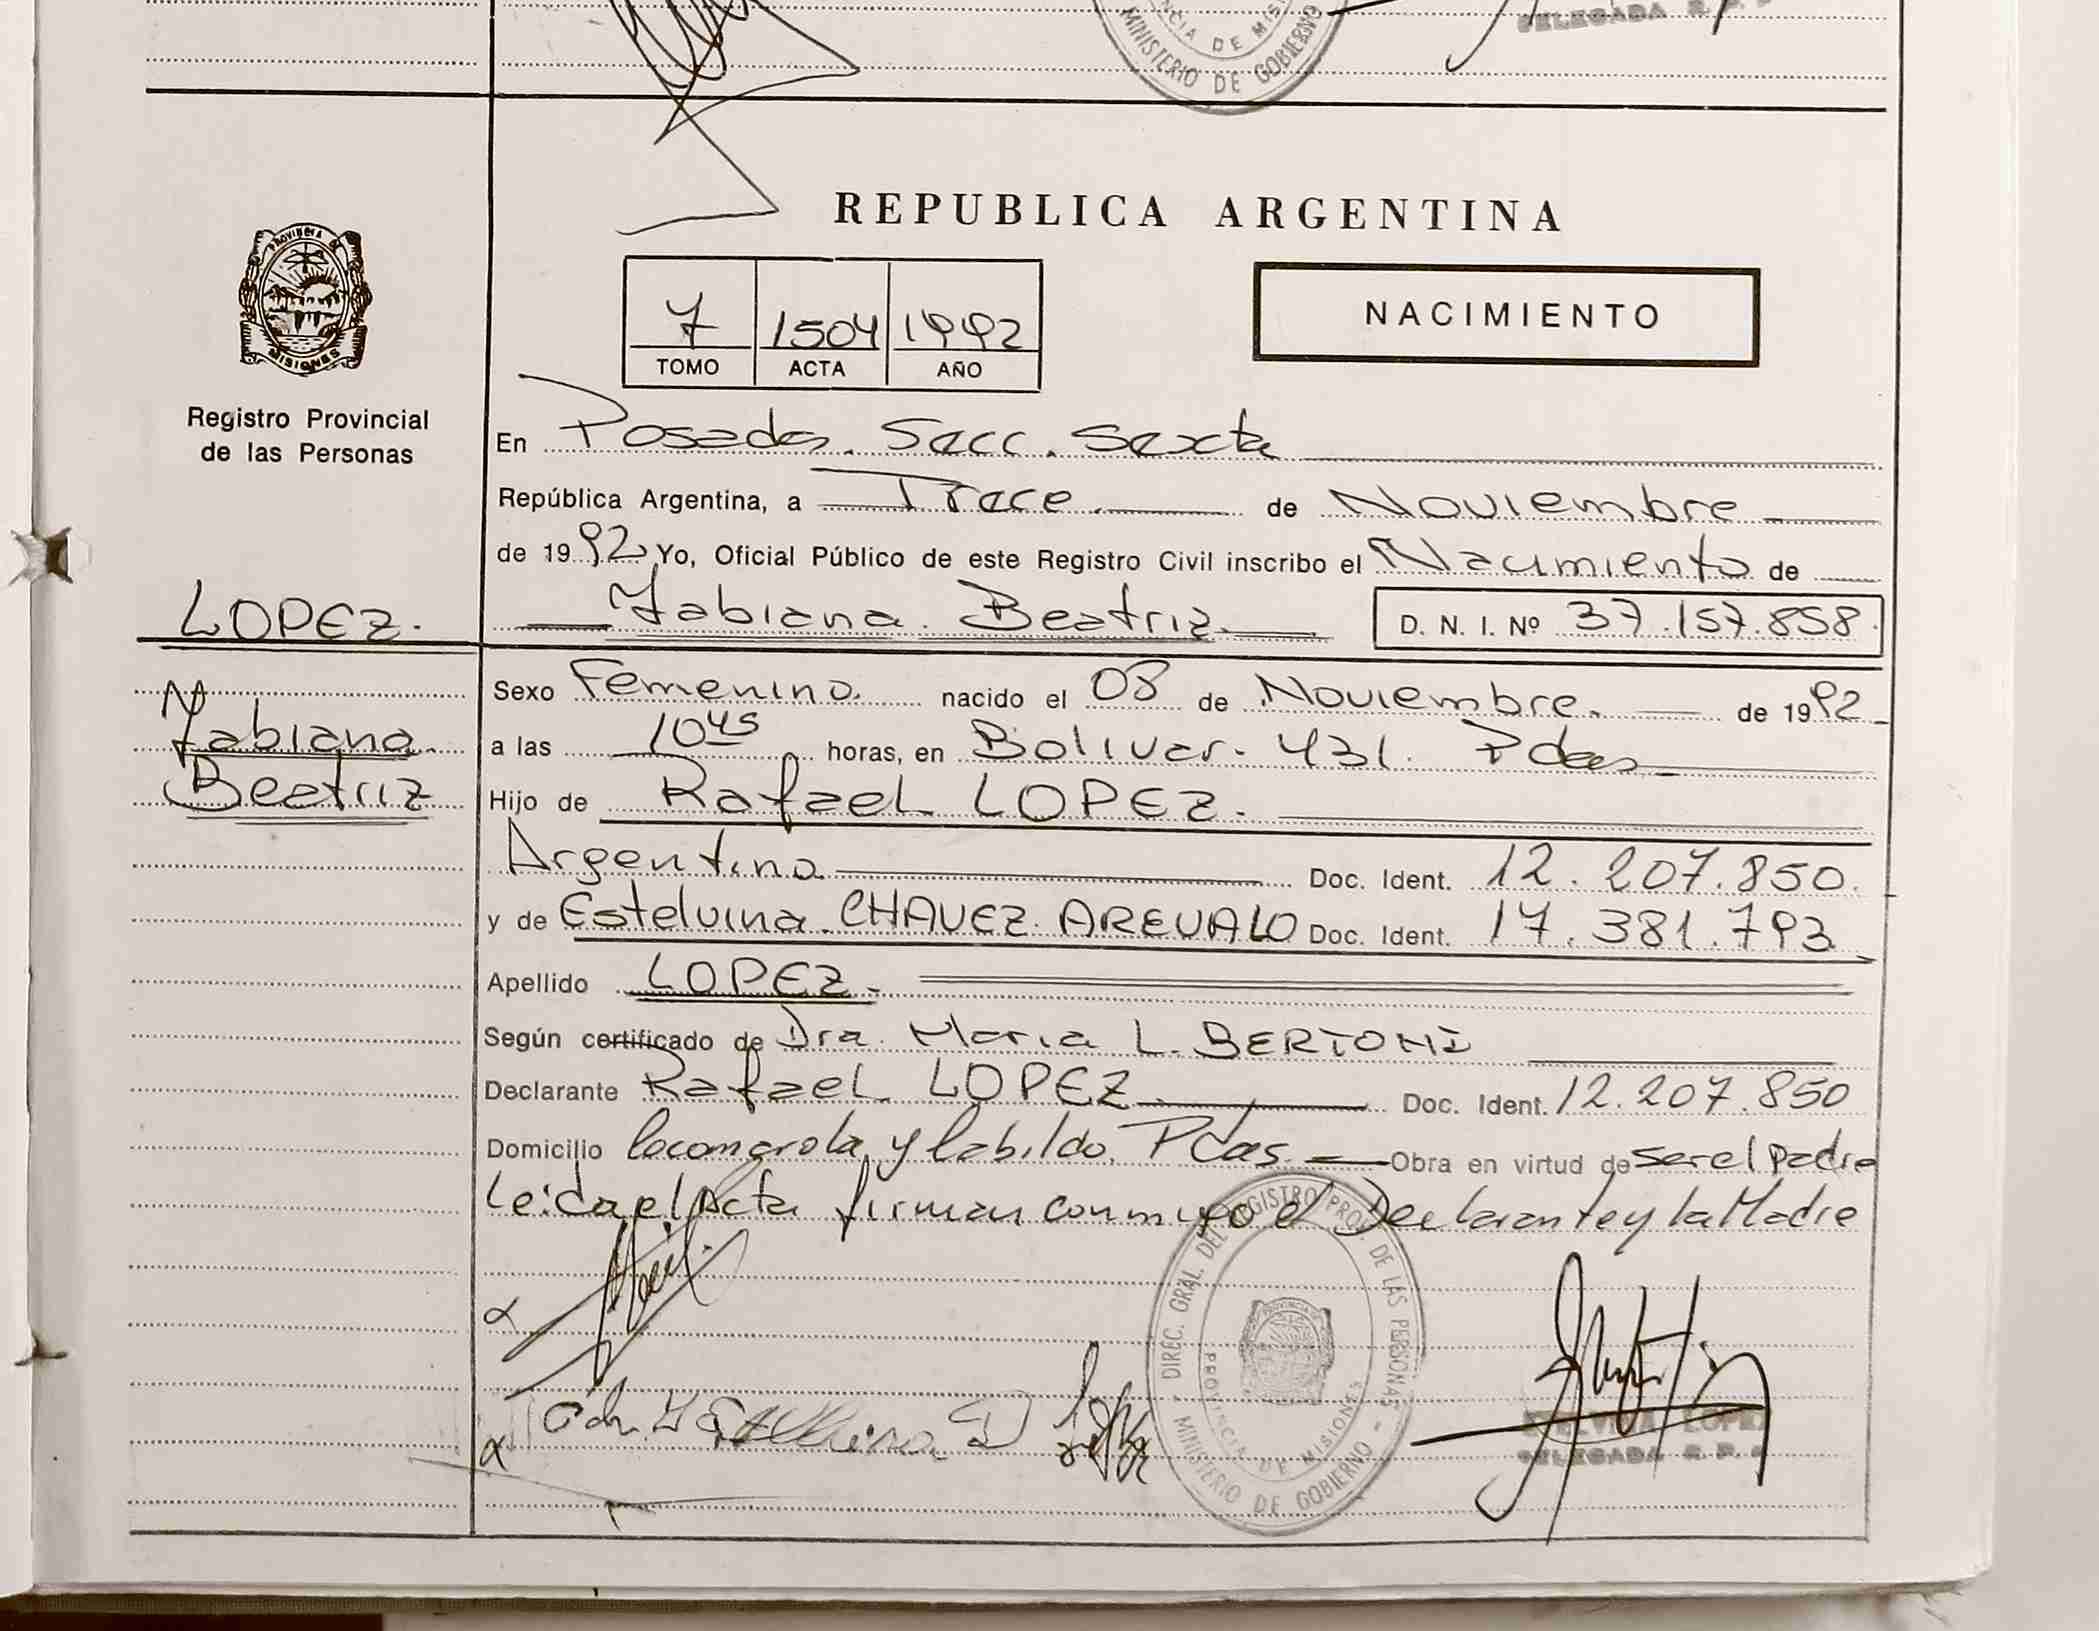 CIA DE MIS
MINISTERIO DE GOBIERNO
DELEGADA R. P.
REPUBLICA ARGENTINA
PROVINCIA DE
MISIONES
Registro Provincial
de las Personas
7 1504 1992
TOMO ACTA AÑO
NACIMIENTO
En Posadas. Secc. Sexta
República Argentina, a Trece de Noviembre
de 1992 Yo, Oficial Público de este Registro Civil inscribo el Nacimiento de
LOPEZ.
Fabiana Beatriz D. N. I. Nº 37.157.858
Fabiana
Beatriz
Sexo Femenino. nacido el 08 de Noviembre. de 1992
a las 10 45 horas, en Bolivar. 431. Pdas
Hijo de Rafael LOPEZ.
Argentino Doc. Ident. 12.207.850.
y de Estelvina. CHAVEZ. AREVALO Doc. Ident. 17.381.793
Apellido LOPEZ.
Según certificado de Dra. Maria L. BERTONI
Declarante Rafael LOPEZ Doc. Ident. 12.207.850
Domicilio y Cabildo, Pdas Obra en virtud de ser el padre
Leida el Acta firman conmigo el Declarante y la Madre
DIREC. GRAL. DEL REGISTRO PROV. DE LAS PERSONAS
PROVINCIA DE MISIONES
MINISTERIO DE GOBIERNO
LOPEZ
DELEGADA R. P.